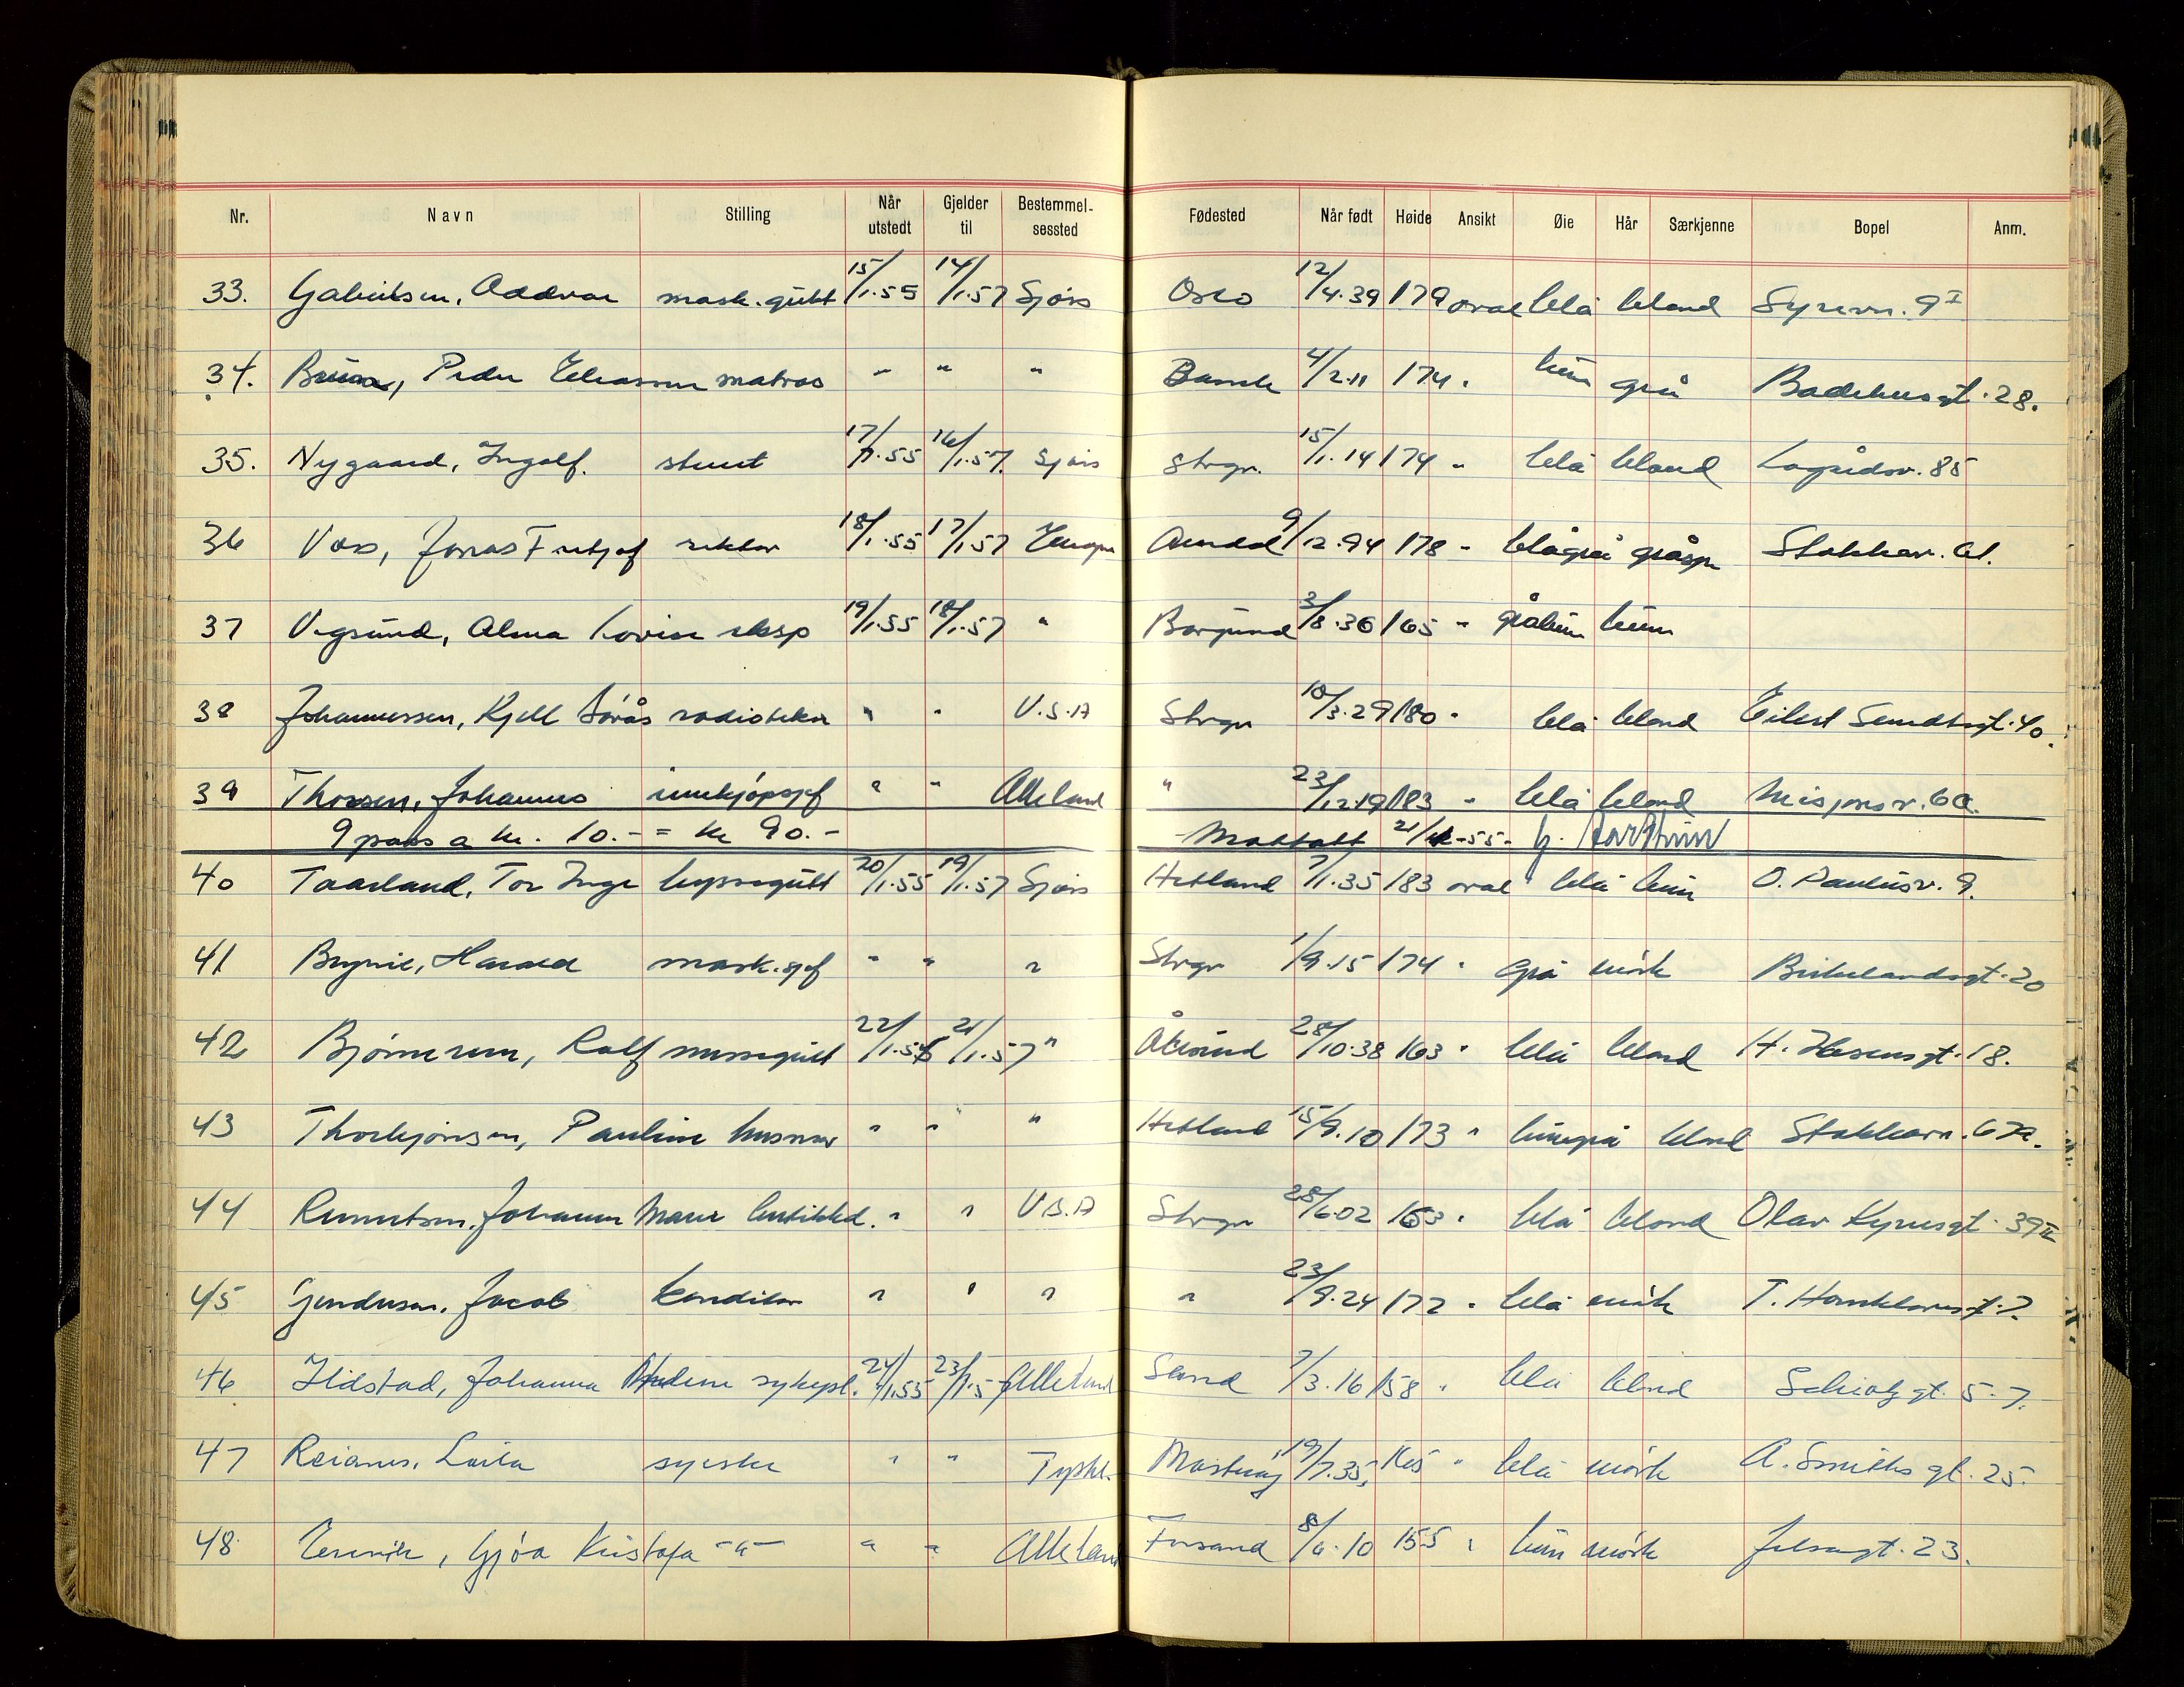 Nr. Navn Stilling Når utstedt Gjelder til Bestemmelsessted Fødested Når født Høide Ansikt Øie Hår Særkjenne Bopel Anm.
33. Gabrielsen, Oddvar mask.gutt 15/1.55 14/1.57 Sjøis Oslo 12/4.39 179 oval blå blond Syrevn. 9 I
34. Bruun, Peder Eliassen matros " " " Bamle 4/2.11 174 " brun grå Badehusgt. 28.
35. Nygaard, Ingolf. stuert 17/1.55 16/1.57. Sjøis Stvgr. 15/1.14 174 " blå blond Lagårdsv. 85
36 Vos, Jonas Fritjof rektor 18/1.55 17/1.57 Europa Arendal 9/12.94 178 " blågrå gråspr Stokkav. 61.
37 Vigsund, Alma Lovise eksp 19/1.55 18/1.57 " Borgund 3/8.36 165 " gråbrun brun
38 Johannessen, Kjell Sørås radiotekn " " U.S.A Stvgr 10/3.29 180 " blå blond Eilert Sundtsgt. 40.
39 Thorsen, Johannes innkjøpssjef " " Alle land " 23/12.19 183 " blå blond Misjonsv. 6a.
9 pass a kr. 10.- = kr 90.- Mottatt 21/1-55-
40 Taarland, Tor Inge byssegutt 20/1.55 19/1.57 Sjøis Hetland 7/1.35 183 oval blå brun O. Paulusv. 9.
41 Brynie, Harald mask.sjef " " " Stvgr 1/9.15 174 " grå mørk Birkelandsgt. 20
42 Bjørnersen, Rolf messegutt 22/1.55 21/1.57 " Åkrund 28/10.38 163 " blå blond H. Ibsensgt. 18.
43 Thorbjørnsen, Pauline husmor " " " Hetland 15/9.10 173 " brungrå blond Stokkavn. 67a.
44 Knutsen, Johanne Marie butikkd. " " U.S.A Stvgr 28/6.02 163 " blå blond Olav Kyrresgt. 39 II
45 Gundersen, Jacob konditor " " " " 23/9.24 172 " blå mørk T. Hornklovesgt. 7
46 Ilstad, Johanna sykepl. 24/1.55 23/1.57 Alle land Sand 7/3.16 158 " blå blond Schiøtzgt. 5-7.
47 Reianes, Laila syerske " " Tyskl. Mosterøy 19/7.35, 165 " blå mørk A. Smithsgt. 25.
48 Gjøa Kristofa -"- " " Alle land Forsand 8/6.10 155 " brun mørk Jelsagt. 23.